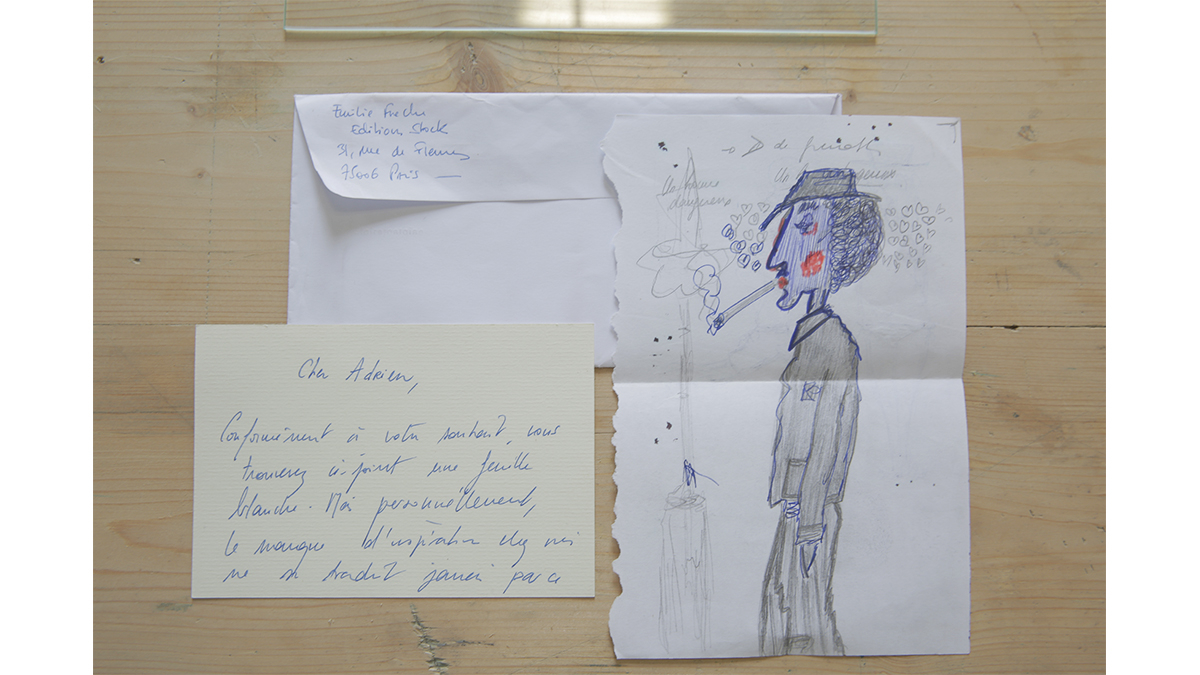 Emilie Freche
Editions Stock
31, rue de Fleurus
75006 Paris
de
Un homme
dangereux
Un homme dangereux
Cher Adrien,
Conformément à votre souhait, vous
trouverez ci-joint une feuille
blanche. Mais personnellement,
le manque d'inspiration chez moi
ne se traduit jamais par ce